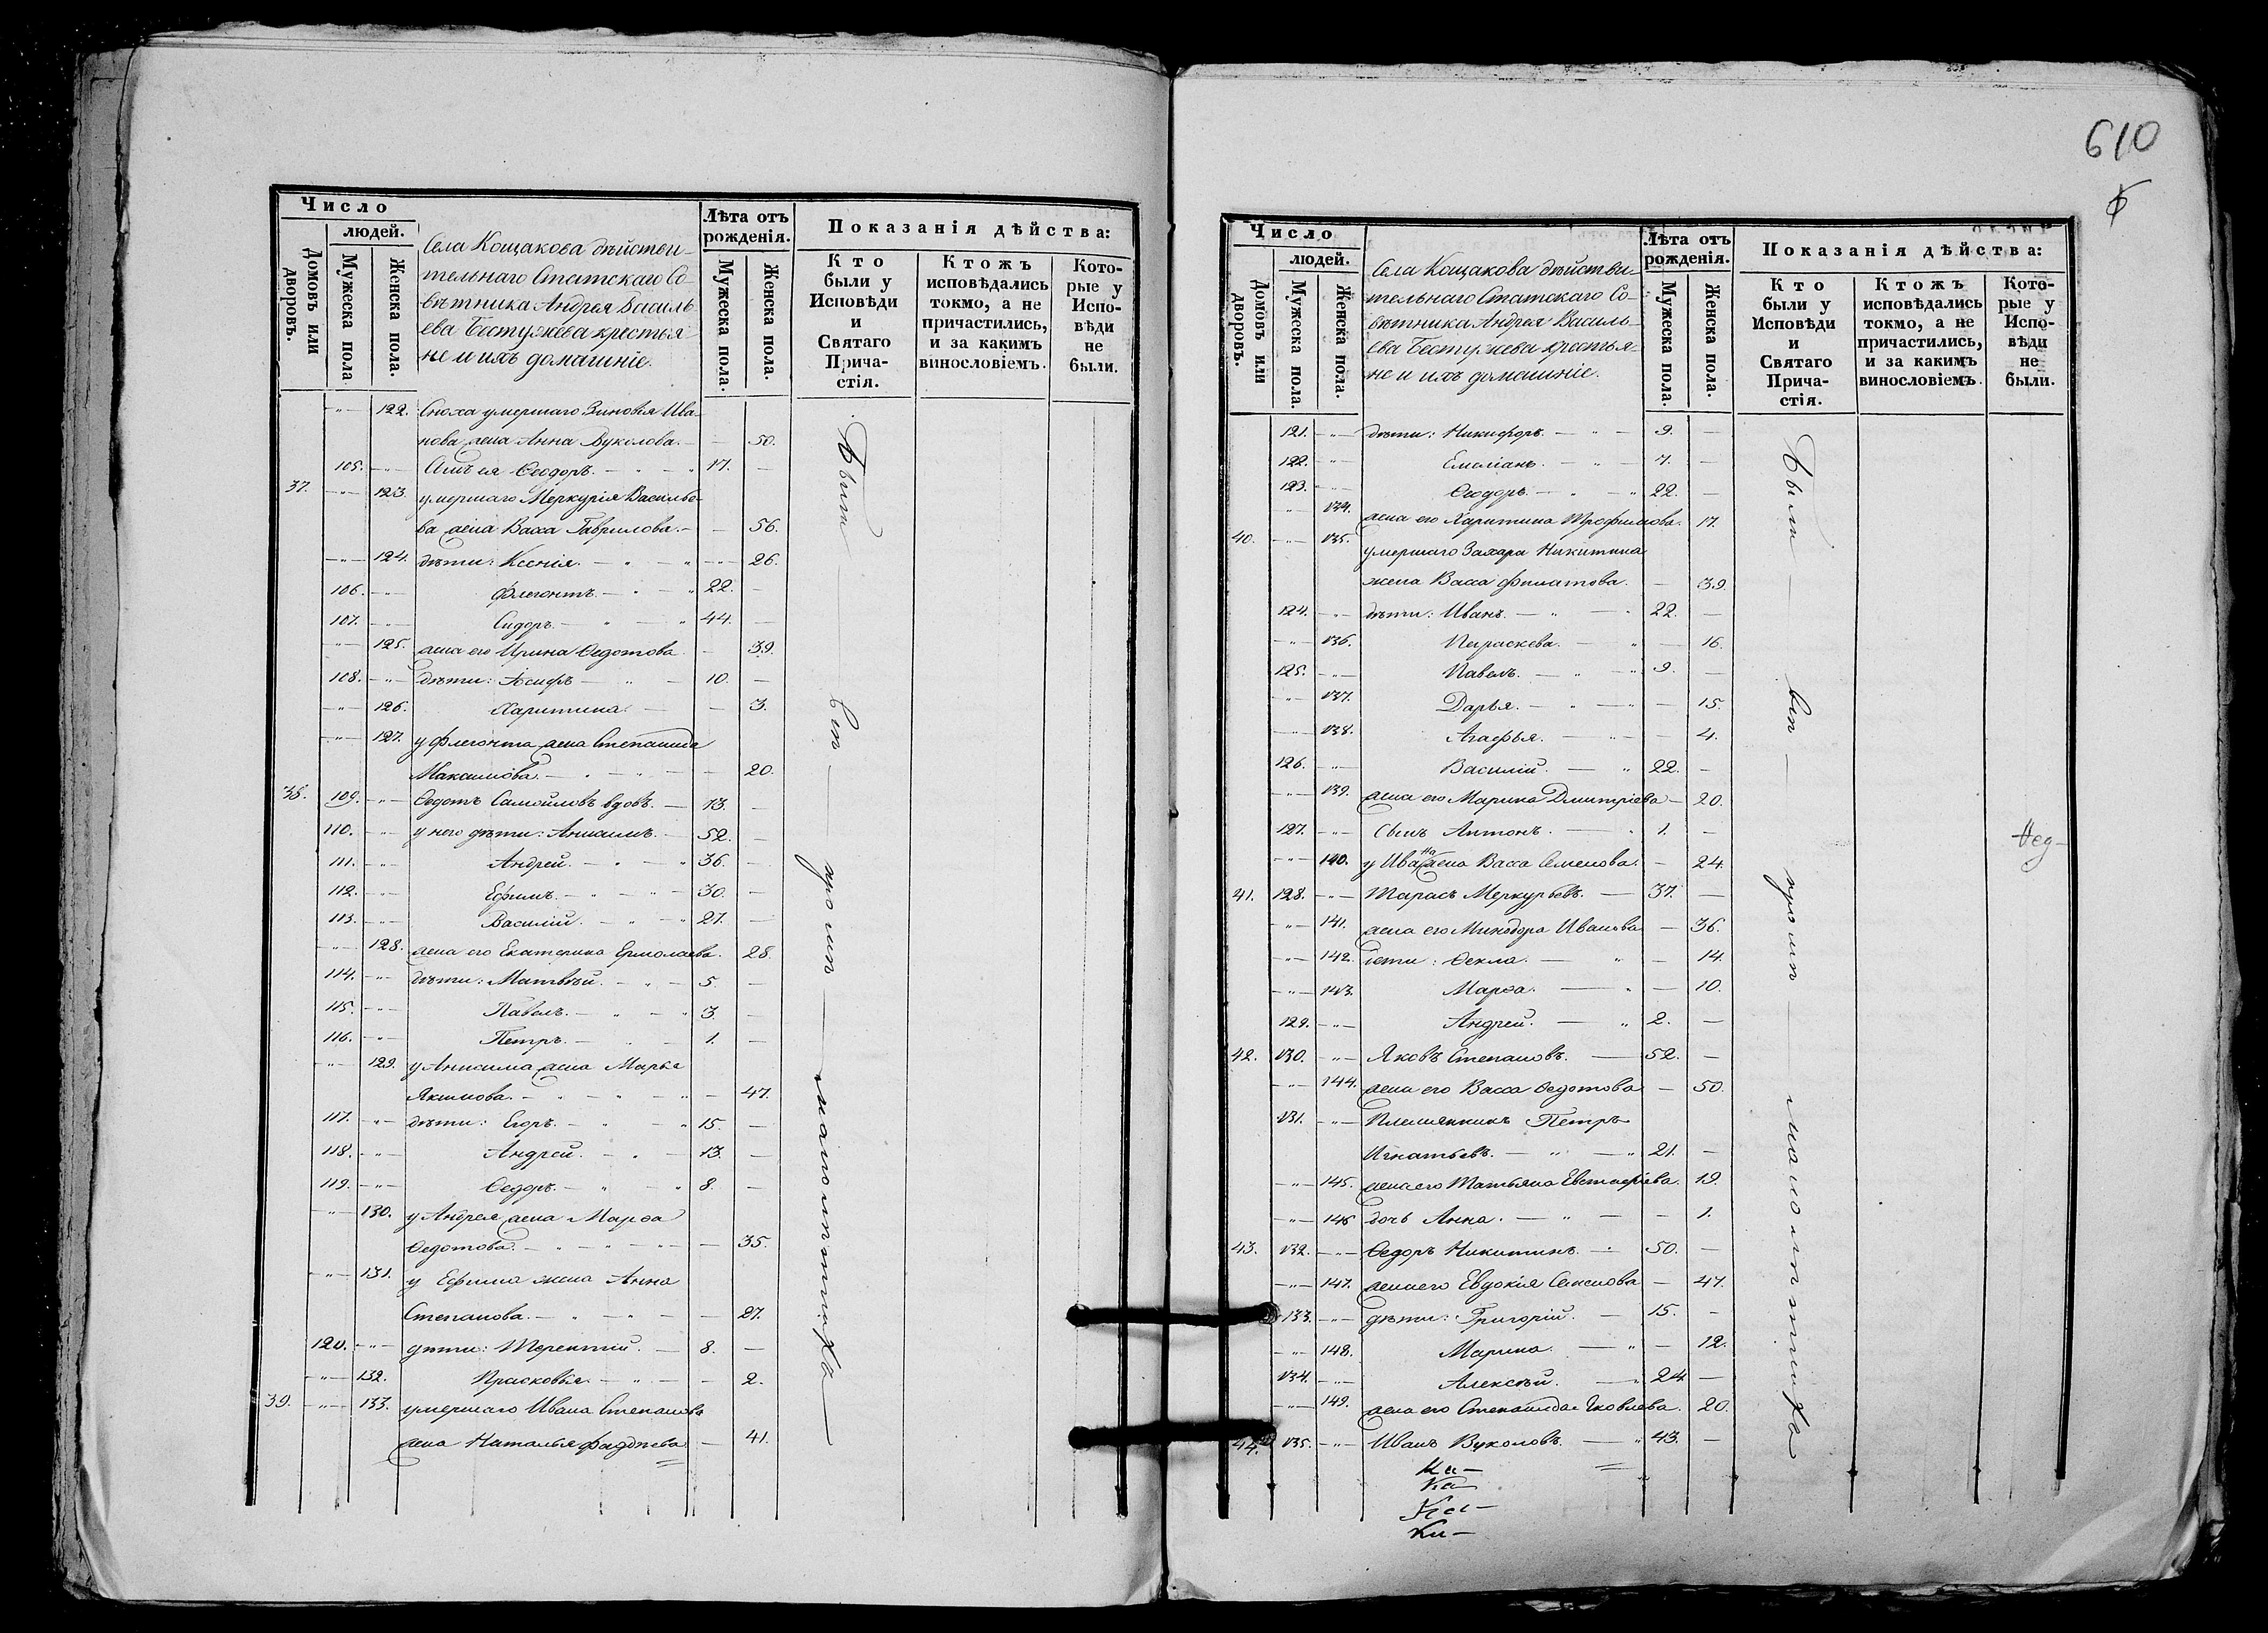 Число
людей.
Домовъ или дворовъ.
Мужеска пола
Женска пола.
Села Кощакова дѣйстви-
тельнаго Статскаго Со-
вѣтника Андрея Василь
ева Бестужева крестья
не и ихъ домашніе.
Лѣта отъ рожденія.
Мужеска пола.
Женска пола.
Показанія дѣйства:
Кто были у Исповѣди и Святаго Прича- стія.
Ктожъ исповѣдались токмо, а не причастились, и за какимъ винословіемъ.
Кото- рые у Испо- вѣди не были.
-"- 122. Сноха умершаго Зиновія Ива-
нова жена Анна Вуколова. — — 50.
105. -"- Сынъ ея Ѳеодоръ. — " — " 17. —
37. -"- 123. умершаго Меркурія Василье-
ва жена Васса Гаврилова. — — 56.
-"- 124. дѣти: Ксенія. — " — " -"- 26.
106. -"- Флегонтъ. — " — " 22. —
107. -"- Сидоръ. — " — " 44. —
-"- 125. жена его Ирина Ѳедотова — 39.
108. -"- дѣти: Іосифъ — " — 10. —
-"- 126. Харитина. — — 3.
-"- 127. у Флегонта жена Степанида
Максимова. — " — " — — 20.
38. 109. -"- Ѳедотъ Самойловъ вдовъ. — 73. —
110. -"- у него дѣти: Анисимъ. — 52. —
111. -"- Андрей. — " — " 36. —
112. -"- Ефимъ. — " — " — 30. —
113. -"- Василій. — " — " 27. —
-"- 128. жена его Екатерина Ермолаева. 28.
114. -"- дѣти: Матвѣй. — " — 5. —
115. -"- Павелъ. — " — " 3. —
116. -"- Петръ. — " — 1. —
-"- 129. у Анисима жена Марья
Якимова. — " — " — " — 47.
117. -"- дѣти: Егоръ. — " — " 15. —
118. -"- Андрей. — " — 13. —
119. -"- Ѳедоръ. — " — " 8. —
-"- 130. у Андрея жена Марѳа
Ѳедотова. — " — " — " — — 35.
-"- 131. у Ефима жена Анна
Степанова. — " — " — — 27.
120. -"- дѣти: Терентій. — 8. —
-"- 132. Прасковья. — " — — 2.
39. -"- 133. умершаго Ивана Степанова
жена Наталья Фадѣева — 41.
Были — вси — кромѣ — малолѣтныхъ —
610
Число
людей.
Домовъ или дворовъ.
Мужеска пола.
Женска пола.
Села Кощакова дѣйстви-
тельнаго Статскаго Со-
вѣтника Андрея Василь-
ева Бестужева крестья-
не и ихъ домашніе.
Лѣта отъ рожденія.
Мужеска пола.
Женска пола.
Показанія дѣйства:
Кто были у Исповѣди и Святаго Прича- стія.
Ктожъ исповѣдались токмо, а не причастились, и за какимъ винословіемъ.
Кото- рые у Испо- вѣди не были.
121. -"- дѣти: Никифоръ. — " — 9. —
122. -"- Емеліанъ. — " — 7. —
123. -"- Ѳеодоръ. — " — " 22. —
-"- 134. жена его Харитина Трофимова. 17.
40. -"- 135. умершаго Захара Никитина
жена Васса Филатова. — 39.
124. -"- дѣти: Иванъ. — " — " 22. —
-"- 136. Параскева. — " — 16.
125. -"- Павелъ. — " — " 9. —
-"- 137. Дарья. — " — " — 15.
-"- 138. Агафья. — " — — 4.
126. -"- Василій. — " 22. —
-"- 139. жена его Марина Дмитріева — 20.
127. -"- Сынъ Антонъ. — " 1. —
-"- 140. у Ивана жена Васса Семенова. — 24.
41. 128. -"- Тарасъ Меркурьевъ. — 37. —
-"- 141. жена его Минодора Иванова — 36.
-"- 142. дѣти: Ѳекла. — " — 14.
-"- 143. Марѳа. — " — 10.
129. -"- Андрей. — " 2. —
42. 130. -"- Яковъ Степановъ. — 52. —
-"- 144. жена его Васса Ѳедотова — 50.
131. -"- Племянникъ Петръ
Игнатьевъ. — " — " 21. —
-"- 145. жена его Татьяна Евстафіева. 19.
-"- 146 дочь Анна. — " — — 1.
43. 132. -"- Ѳедоръ Никитинъ. — 50. —
-"- 147. жена его Евдокія Семенова — 47.
133. -"- дѣти: Григорій. — 15. —
-"- 148. Марина. — " — 12.
134. -"- Алексѣй. — " 24 —
-"- 149. жена его Степанида Яковлева. 20.
44. 135. -"- Иванъ Вуколовъ. — " 43. —
Были — вси — кромѣ — малолѣтныхъ
Ѳед-